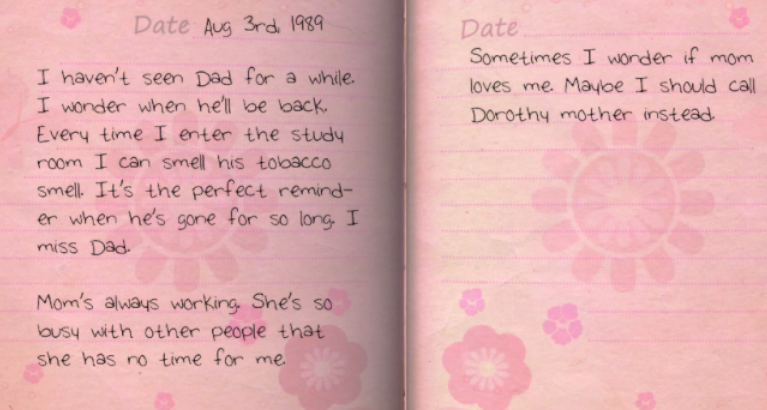 Date Aug 3rd, 1989
I haven't seen Dad for a while.
I wonder when he'll be back.
Every time I enter the study
room I can smell his tobacco
smell. It's the perfect remind-
er when he's gone for so long. I
miss Dad.
Mom's always working. She's so
busy with other people that
she has no time for me.
Date
Sometimes I wonder if mom
loves me. Maybe I should call
Dorothy mother instead.